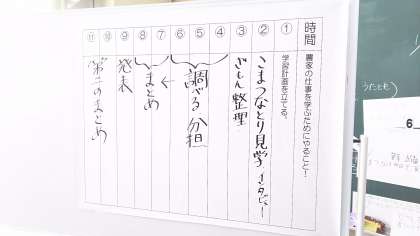 時間
農家の仕事を学ぶためにやること!
①
学習計画を立てる。
②
こまつなとり見学 インタビュー
③
ざしん整理
④
⑤
⑥
調べる 分担
⑦
⑧
まとめ
⑨
発表
⑩
⑪
第二のまとめ
6